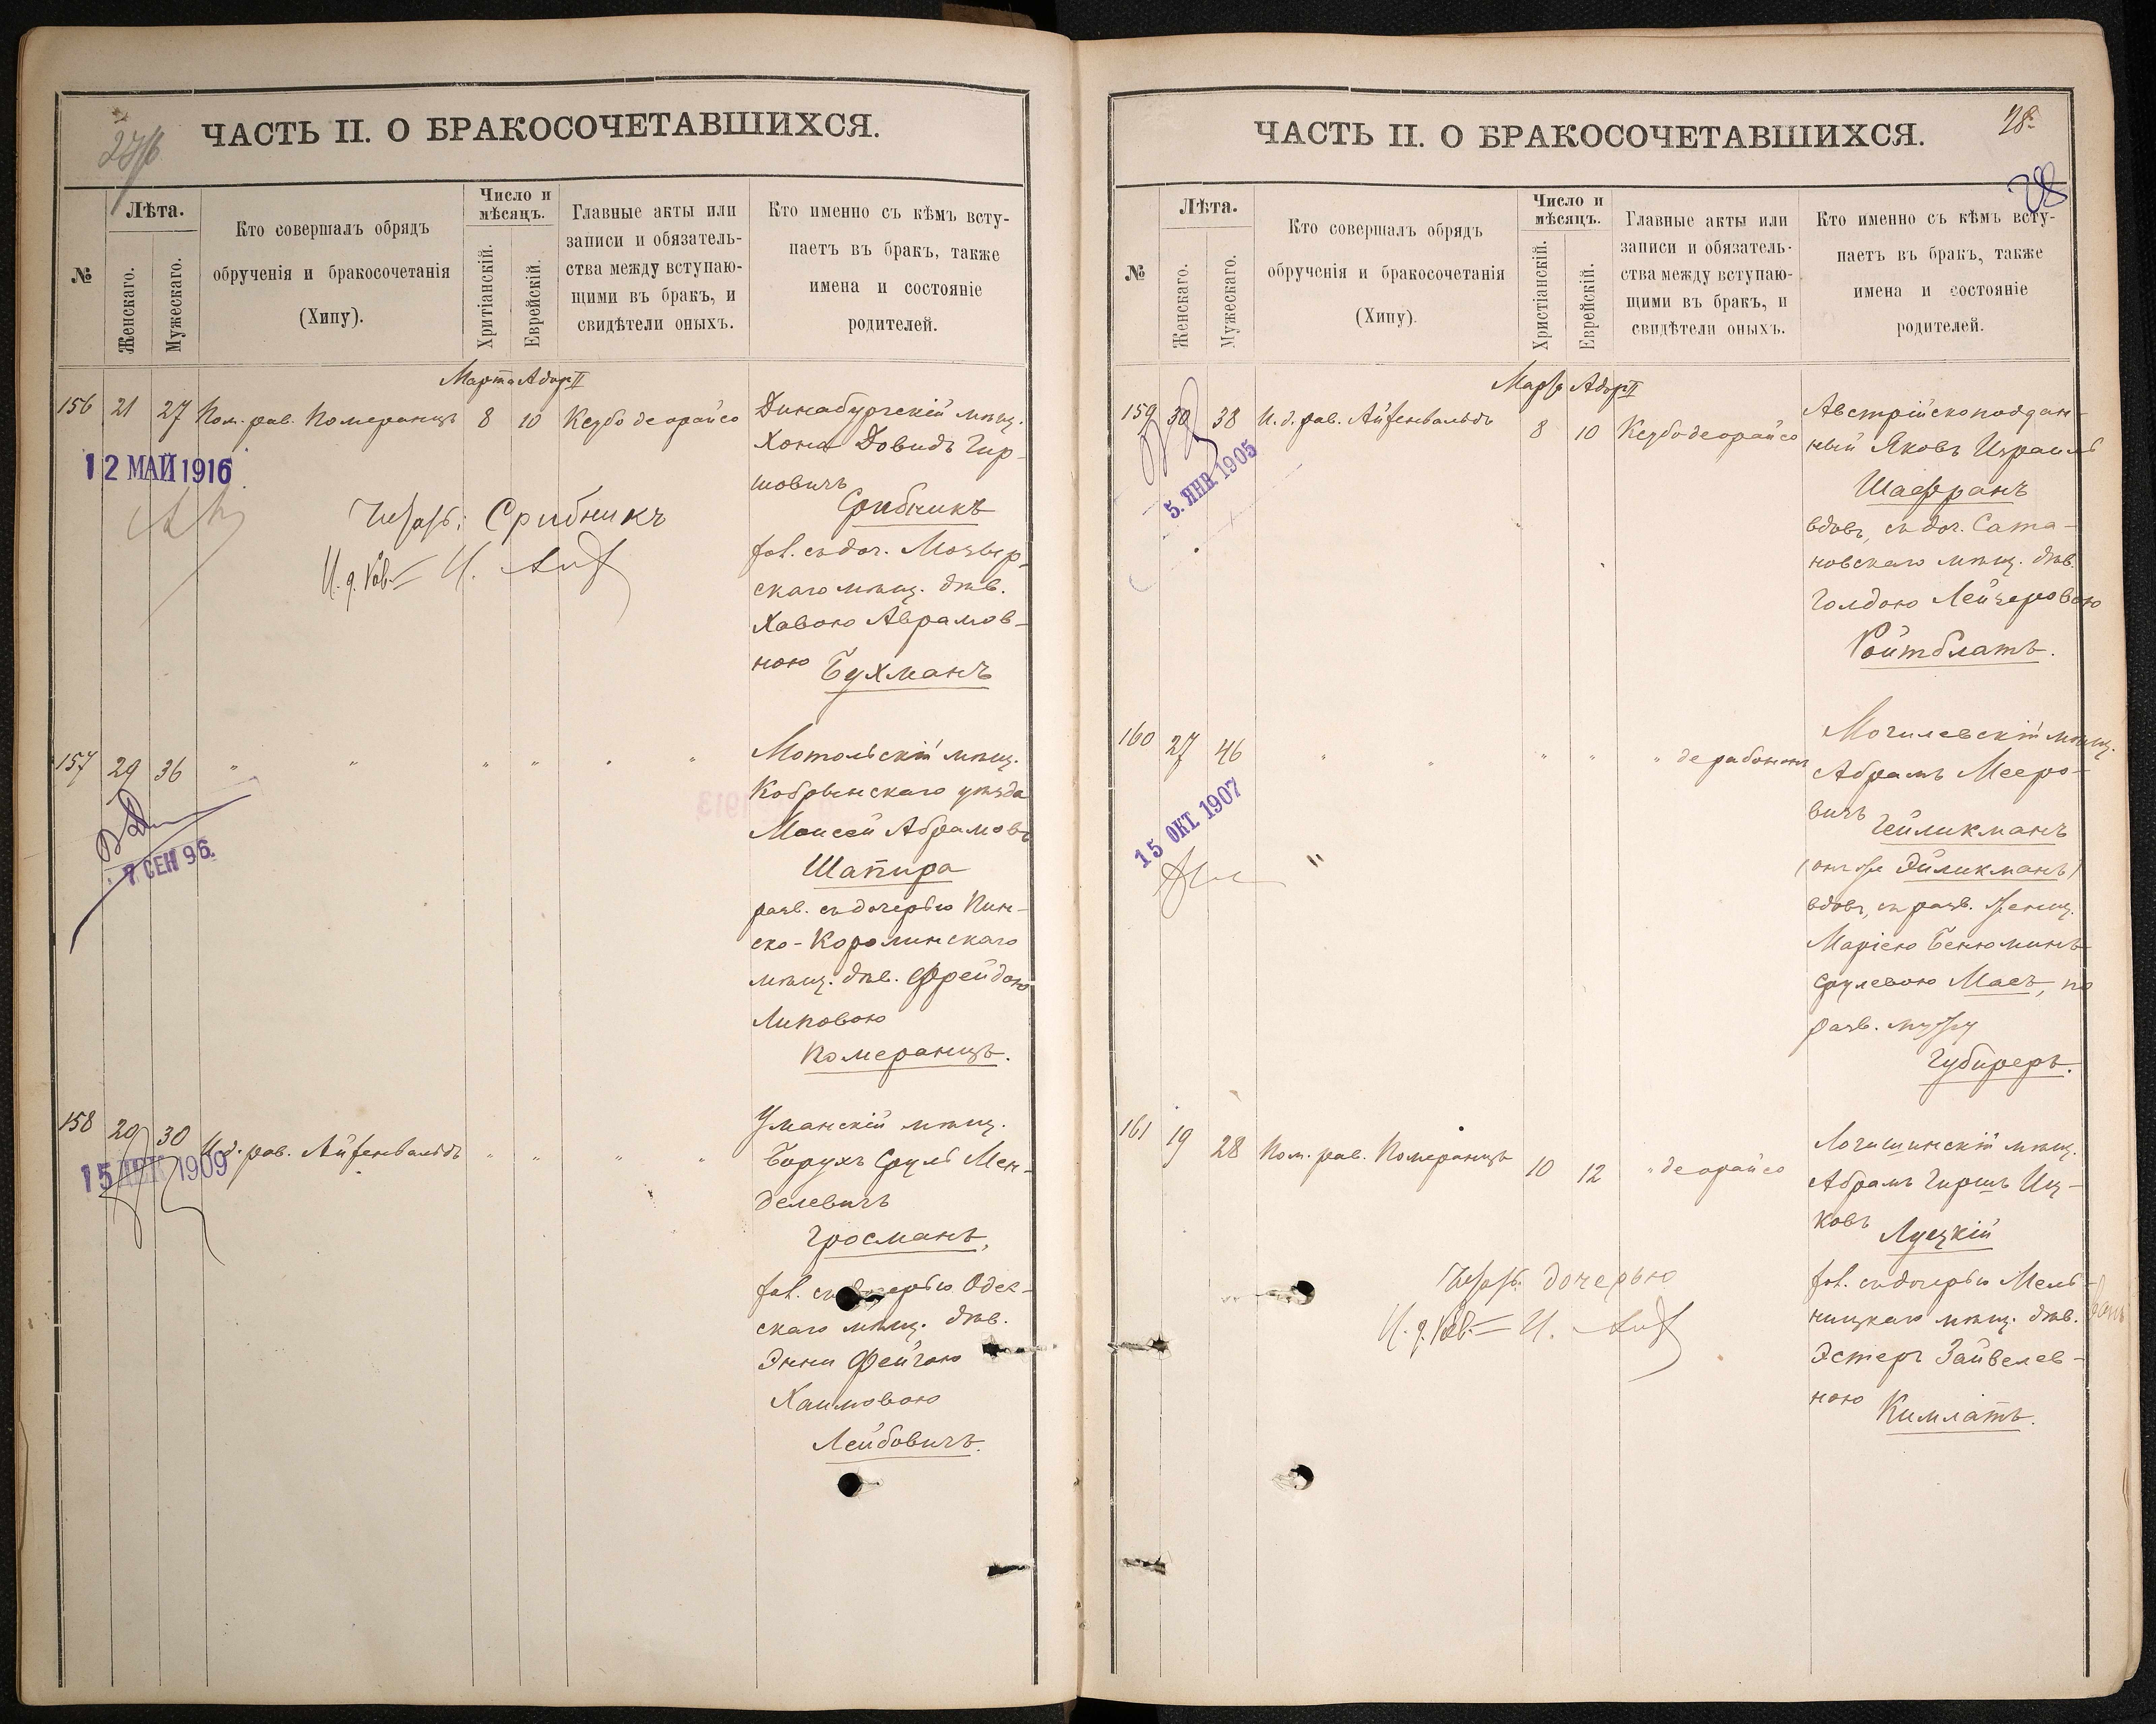 ЧАСТЬ II. О БРАКОСОЧЕТАВШИХСЯ.
№
Лѣта.
Женскаго.
Мужескаго.
Кто совершалъ обрядъ
обрученія и бракосочетанія
(Хипу).
Число и
мѣсяцъ.
Хритіанскій.
Еврейскій.
Главные акты или
записи и обязатель-
ства между вступаю-
щими въ бракъ, и
свидѣтели оныхъ.
Кто именно съ кѣмъ всту-
паетъ въ бракъ, также
имена и состояніе
родителей.
Марта Адоръ II
156 21 27 Пом. рав. Померанцъ 8 10 Кезбо деорайсо
Динабургскій мѣщ.
Хона Довидъ Гир-
шовичъ
Срибникъ
хол. съ доч. Мозыр-
скаго мѣщ. дѣв.
Хавою Аврамов-
ною Бухманъ
12 МАЙ 1916
Читать: Срибникъ
И. д. Рав.
157 29 36 " " " " " "
Мотольскій мѣщ.
Кобрынскаго уѣзда
Моисей Абрамовъ
Шапира
разв. съ дочерью Пин-
ско-Королинскаго
мѣщ. дѣв. Фрейдою
Липовою
Померанцъ.
7 СЕН 96.
158 29 30 И. д. рав. Айзенвальдъ " " " "
Уманскій мѣщ.
Борухъ Сруль Мен-
делевичъ
Гросманъ,
хол. съ дочерью Одес-
скаго мѣщ. дѣв.
Энни Фейгою
Хаимовою
Лейбовичъ.
15 ДЕК 1909
28
28
ЧАСТЬ II. О БРАКОСОЧЕТАВШИХСЯ.
№
Лѣта.
Женскаго.
Мужескаго.
Кто совершалъ обрядъ
обрученія и бракосочетанія
(Хипу).
Число и
мѣсяцъ.
Христіанскій.
Еврейскій.
Главные акты или
записи и обязатель-
ства между вступаю-
щими въ бракъ, и
свидѣтели оныхъ.
Кто именно съ кѣмъ всту-
паетъ въ бракъ, также
имена и состояніе
родителей.
Марта Адоръ II
159 30 38 И. д. рав. Айзенвальдъ 8 10 Кезбо деорайсо
Австрійскоподдан-
ный Яковъ Израиль
Шафранъ
вдовъ, съ доч. Сата-
новскаго мѣщ. дѣв.
Голдою Лейзеровою
Ройтблатъ.
5. ЯНВ. 1905
160 27 46 " " " " " дерабононъ
Могилевскій мѣщ.
Абрамъ Мееро-
вичъ
Гейликманъ
(онъ же Эйликманъ)
вдовъ, съ разв. женщ.
Маріею Бенюминъ-
Срулевою Масъ, по
разв. мужу
Губиреръ.
15 ОКТ. 1907
161 19 28 Пом. рав. Померанцъ 10 12 " деорайсо
Логишинскій мѣщ.
Абрамъ Гиршъ Иц-
ковъ Луцкій
хол. съ дочерью Мель-
ницкаго мѣщ. дѣв.
Эстеръ Зайвелев-
ною Кимлатъ.
Читать: дочерью
И. д. Рав.